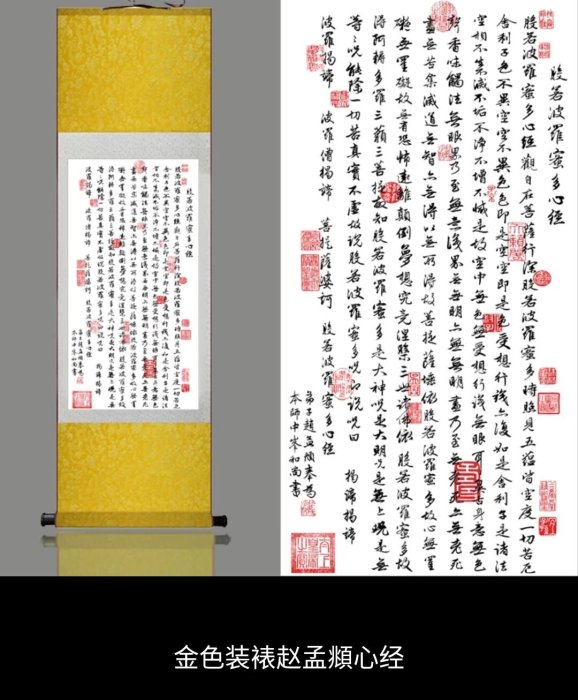 般若波羅蜜多心經
般若波羅蜜多心經觀自在菩薩行深般若波羅蜜多時照見五蘊皆空度一切苦厄
舍利子色不異空空不異色色即是空空即是色受想行識亦復如是舍利子是諸法
空相不生滅不垢不淨不增不減是故空中無色無受想行識無眼耳鼻舌身意無色
聲香味觸法無眼界乃至無意識界無無明亦無無明盡乃至無老死亦無老死
盡無苦集滅道無智亦無得以無所得故菩提薩埵依般若波羅蜜多故心無罣
礙無罣礙故無有恐怖遠離顛倒夢想究竟涅槃三世諸佛依般若波羅蜜多故
得阿耨多羅三藐三菩提故知般若波羅蜜多是大神咒是大明咒是無上咒是無
等等咒能除一切苦真實不虛故說般若波羅蜜多咒即說咒曰 揭諦揭諦
波羅揭諦 波羅僧揭諦 菩提薩婆訶 般若波羅蜜多心經
弟子趙孟頫奉為
本師中峯和尚書
金色装裱赵孟頫心经